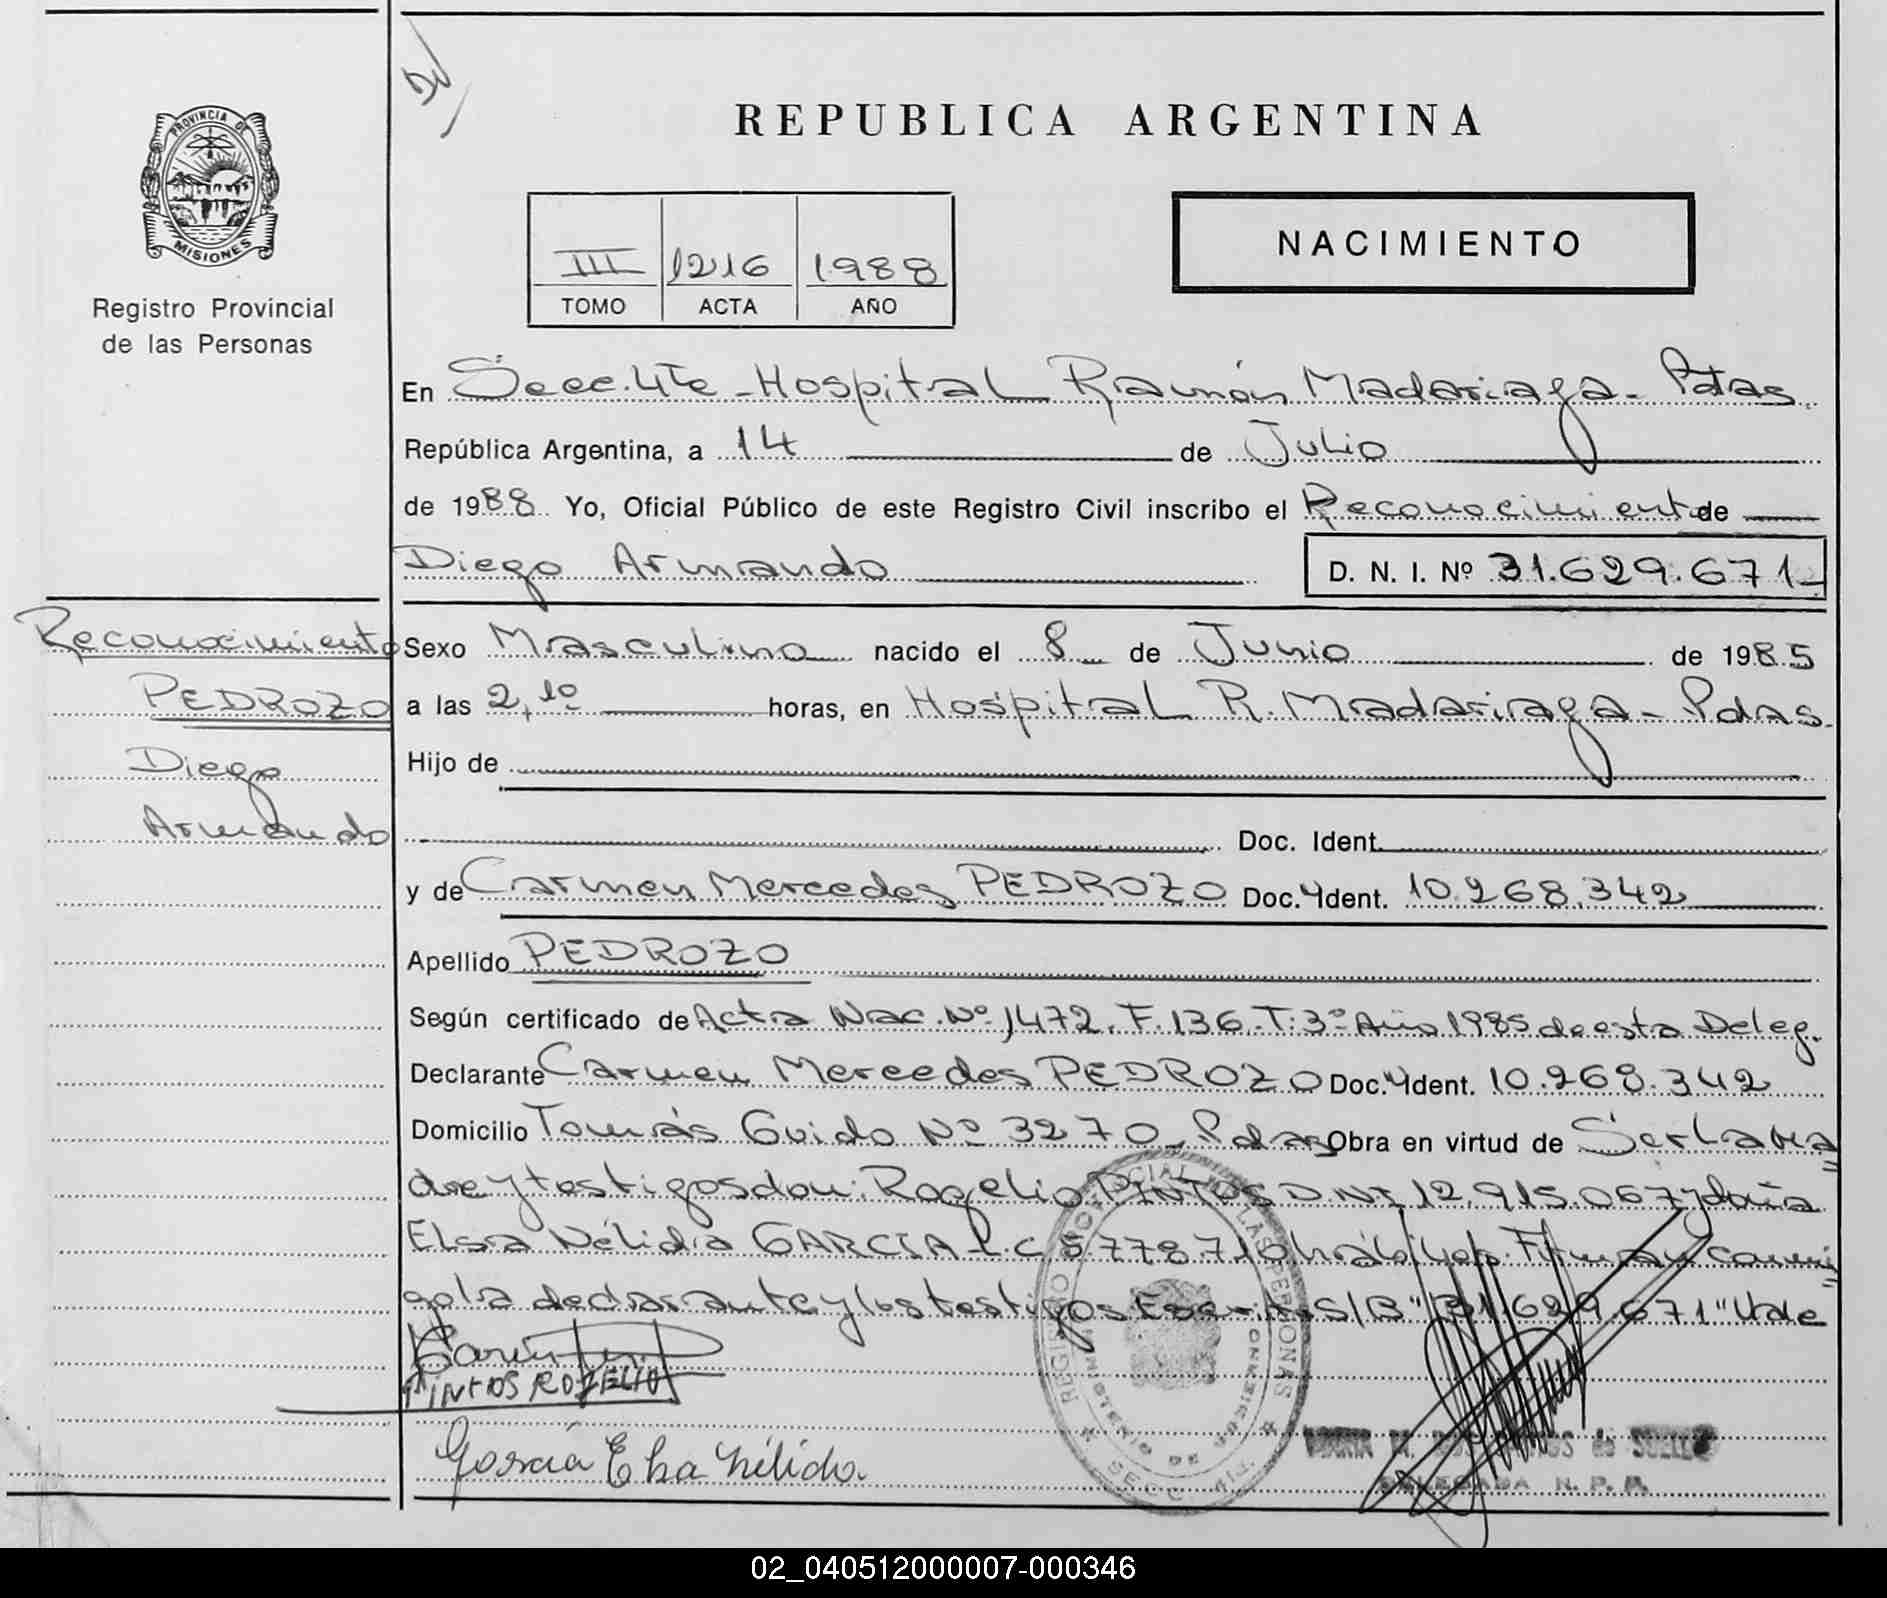 REPUBLICA ARGENTINA
PROVINCIA DE
MISIONES
Registro Provincial
de las Personas
III 1216 1988
TOMO ACTA AÑO
NACIMIENTO
En Secc. 4ta - Hospital Ramón Madariaga - Pdas.
República Argentina, a 14 de Julio
de 1988 Yo, Oficial Público de este Registro Civil inscribo el Reconocimiento de
Diego Armando
D. N. I. Nº 31.629.671-
Reconocimiento
PEDROZO
Diego
Armando
Sexo Masculino nacido el 8 de Junio de 1985
a las 2,10 horas, en Hospital R. Madariaga - Pdas.
Hijo de
Doc. Ident.
y de Carmen Mercedes PEDROZO Doc. Ident. 10.268.342
Apellido PEDROZO
Según certificado de Acta Nac. Nº 1472. F. 136. T. 3º Año 1985 de esta Deleg.
Declarante Carmen Mercedes PEDROZO Doc. Ident. 10.268.342
Domicilio Tomás Guido Nº 3270 - Pdas Obra en virtud de Ser la ma=
dre y testigos don: Rogelio PINTOS D.N.I 12.915.067 y doña
Elsa Nélida GARCIA L.C 5.778.710 hábiles. Firman conmi=
go la declarante y los testigos S/B "31.629.671" Vale
PINTOS ROGELIO
García Elsa Nélida.
REGISTRO PROVINCIAL DE LAS PERSONAS
MINISTERIO DE GOBIERNO
SECC.
DELEGADA R. P. P.
02_040512000007-000346